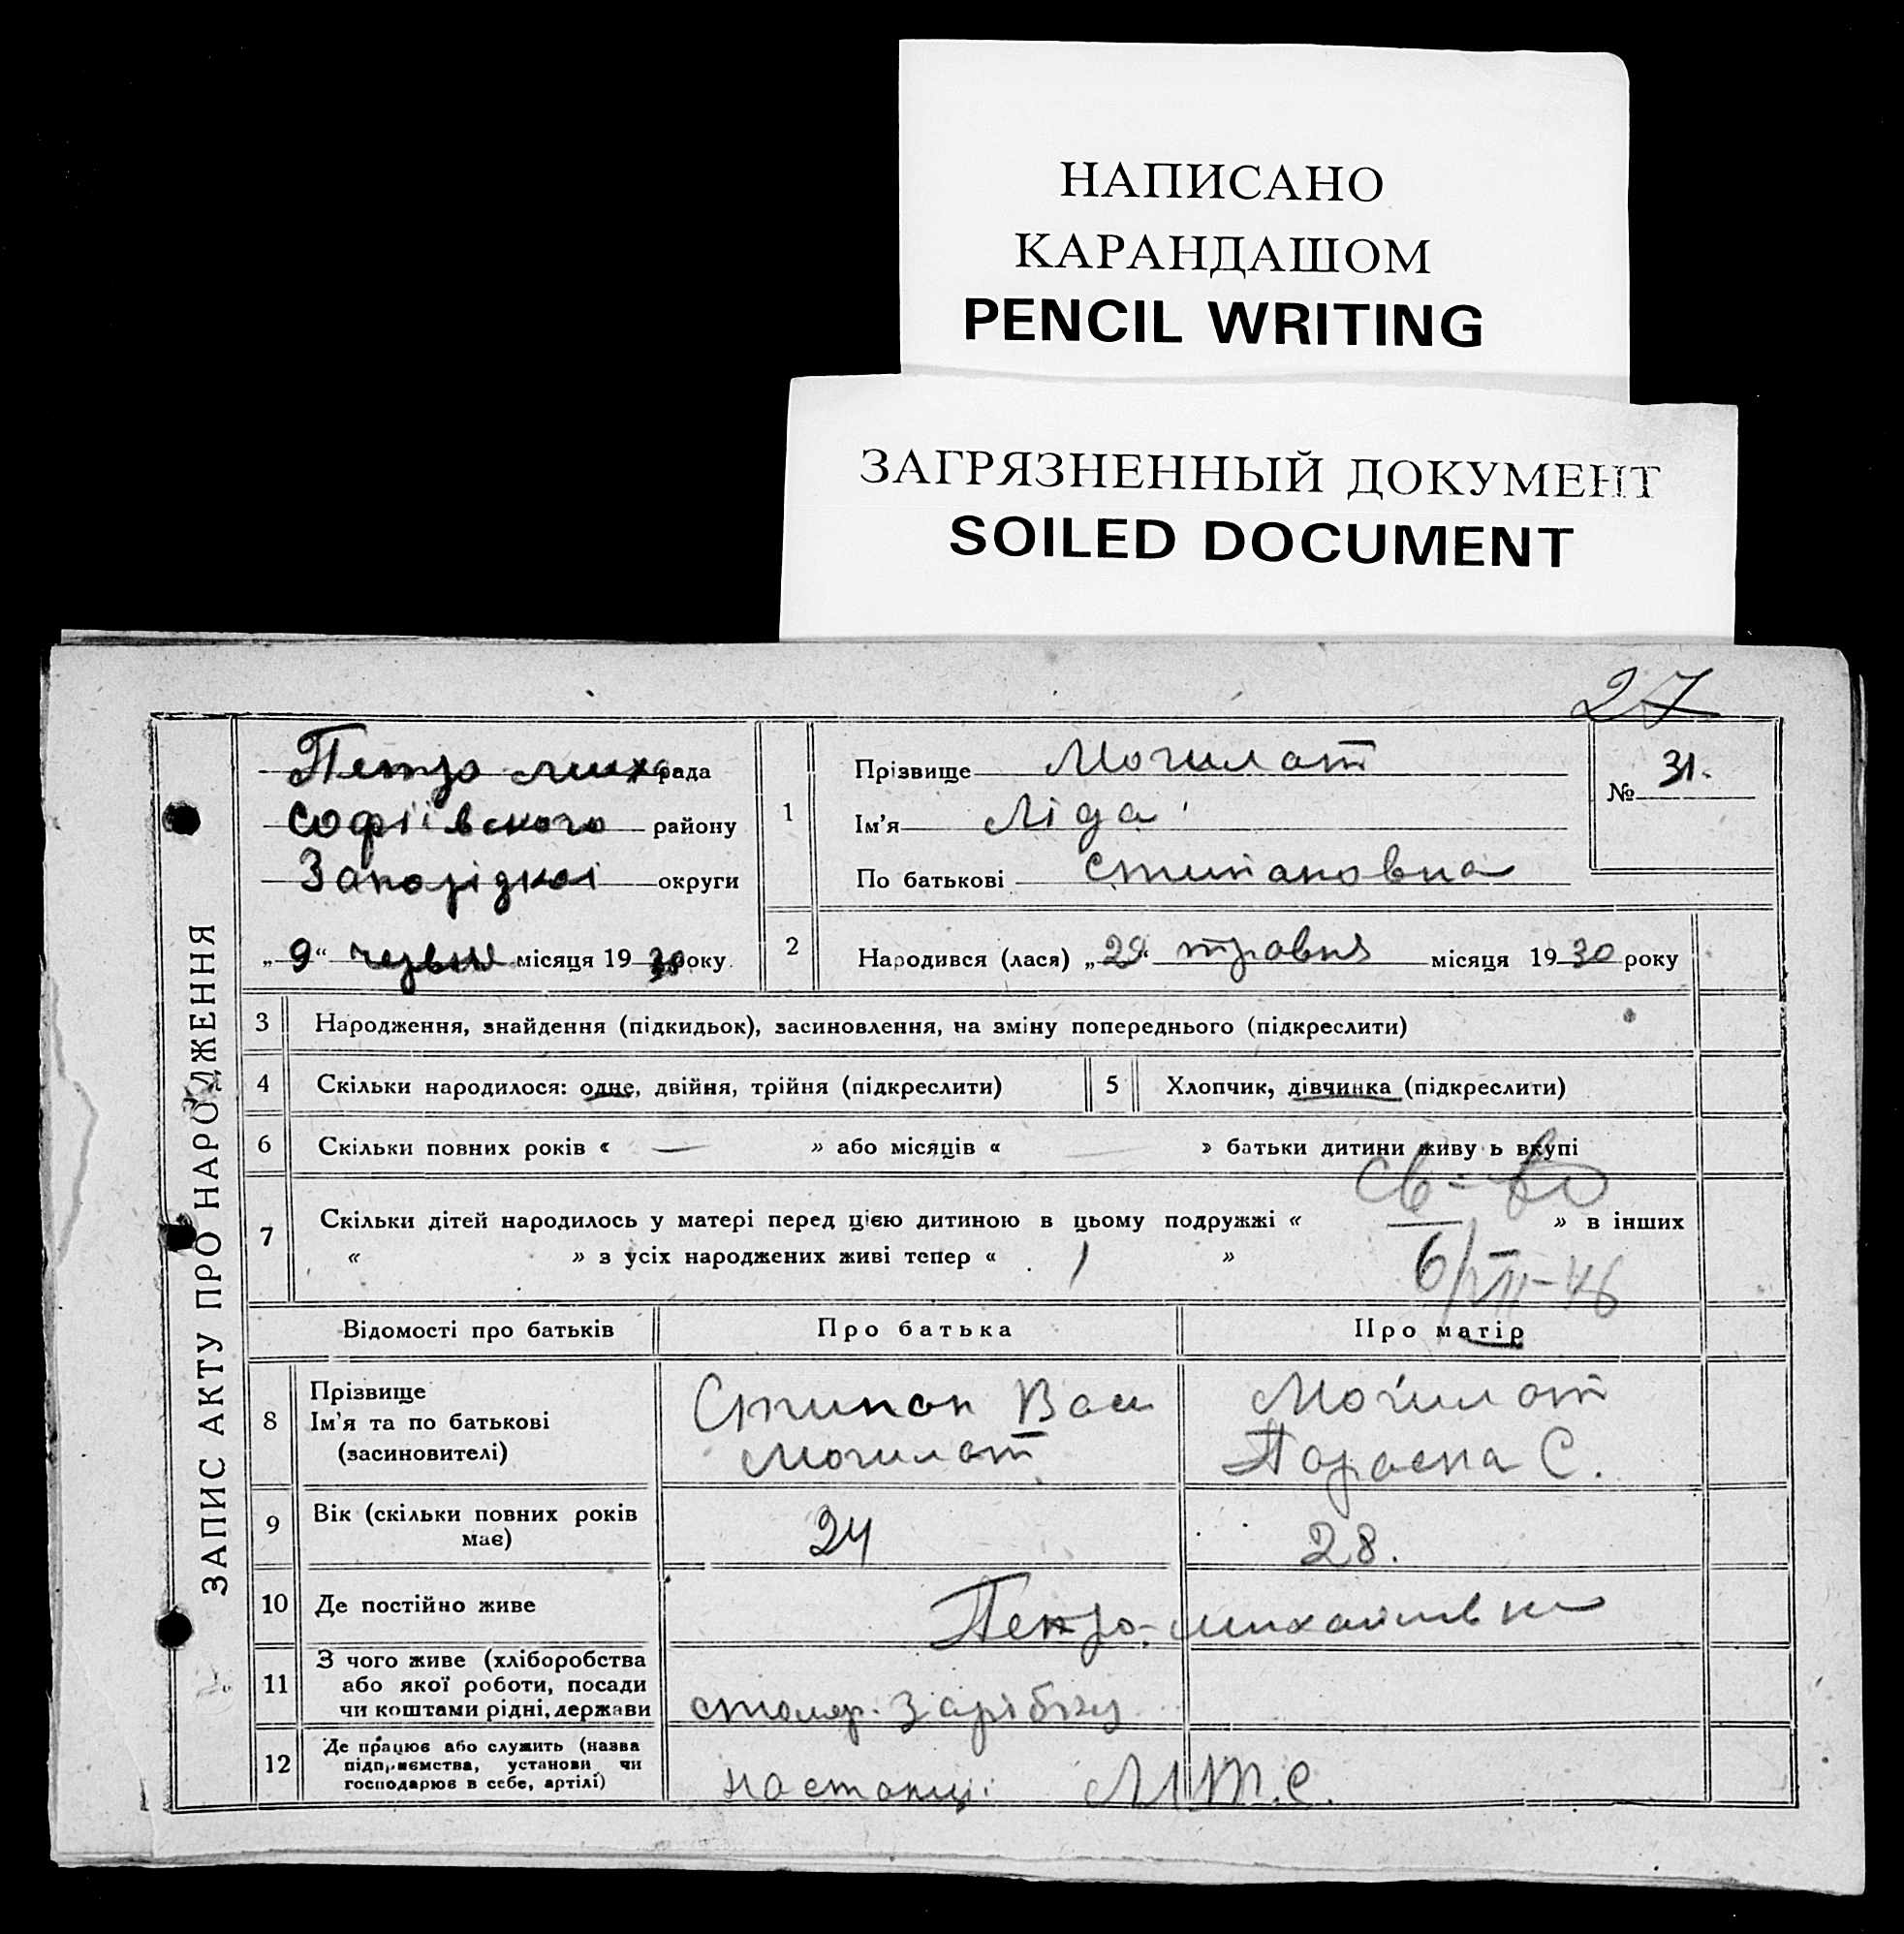 НАПИСАНО
КАРАНДАШОМ
PENCIL WRITING
ЗАГРЯЗНЕННЫЙ ДОКУМЕНТ
SOILED DOCUMENT
27
ЗАПИС АКТУ ПРО НАРОДЖЕННЯ
Петро миха рада
Софіївського району
Запорізкоі округи
„9“ червня місяця 1930 року
1
Прізвище Могилат
Ім'я Ліда
По батькові Стипановна
№ 31.
2 Народився (лася) „29“ травня місяця 1930 року
3 Народження, знайдення (підкидьок), засиновлення, на зміну попереднього (підкреслити)
4 Скільки народилося: одне, двійня, трійня (підкреслити)
5 Хлопчик, дівчинка (підкреслити)
6 Скільки повних років « — » або місяців « » батьки дитини живу ь вкупі
Св-во
7 Скільки дітей народилось у матері перед цією дитиною в цьому подружжі « — » в інших
« » з усіх народжених живі тепер « 1 »
6/VII-46
Відомості про батьків Про батька Про матір
8 Прізвище
Ім'я та по батькові
(засиновителі)
Стипан Вас
Могилат
Могилат
Параска С.
9 Вік (скільки повних років
має)
24
28.
10 Де постійно живе
Петро-михайлівка
11 З чого живе (хліборобства
або якої роботи, посади
чи коштами рідні, держави
столяр. Зарібку
12 Де працює або служить (назва
підприємства, установи чи
господарює в себе, артілі)
на станціі М.Т.С.